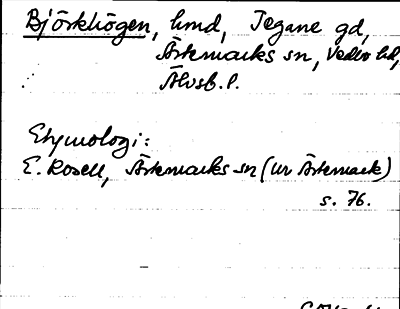 Björkhögen, hmd, Tegane gd,
Ärtemarks sn, Vedbo hd,
Älvsb. l.
Etymologi:
E. Rosell, Ärtemarks sn (ur Ärtemark)
s. 76.